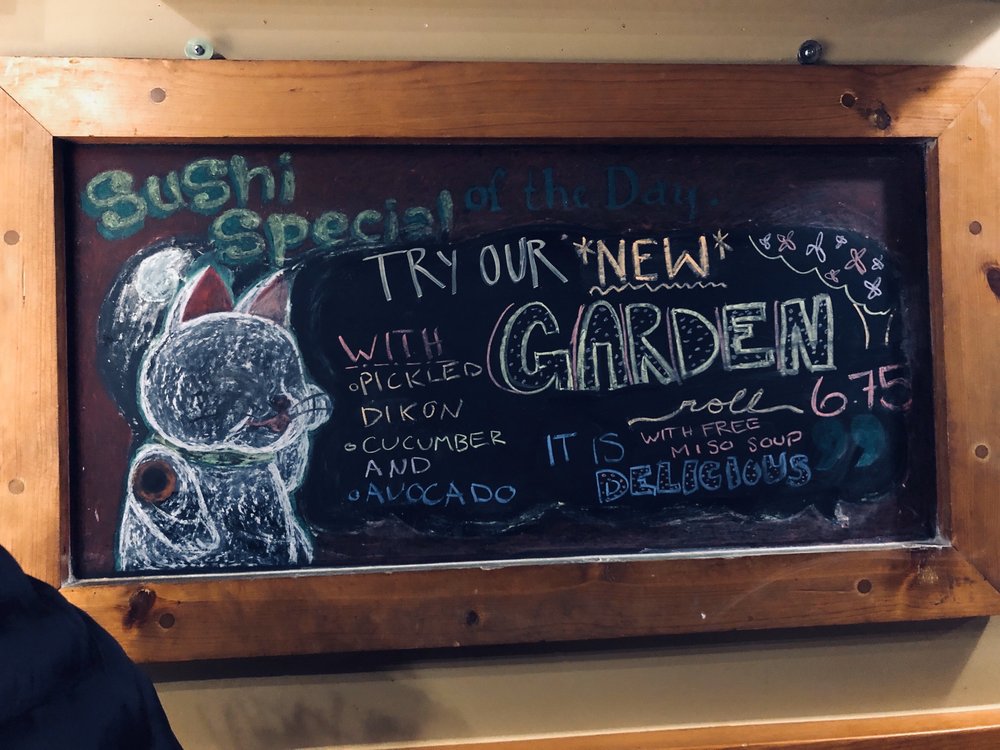 Sushi
Special of the Day.
TRY OUR *NEW*
GARDEN
roll 6.75
WITH
○PICKLED
DIKON
○CUCUMBER
AND
○AVOCADO
WITH FREE
MISO SOUP
IT IS
DELIGIOUS